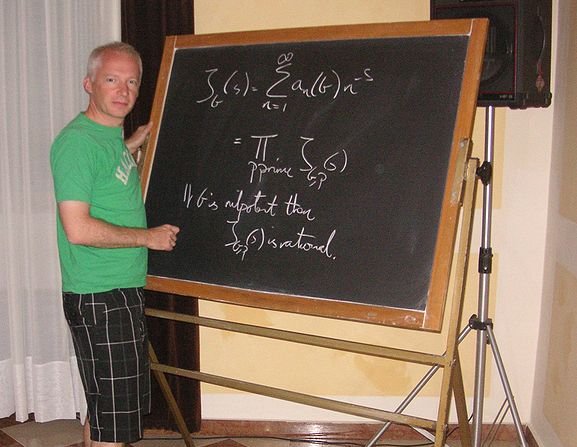 ζ_G(s) = ∑_{n=1}^{∞} a_n(G) n^{-s}
= ∏_{p prime} ζ_{G,p}(s)
If G is nilpotent then
ζ_{G,p}(s) is rational.